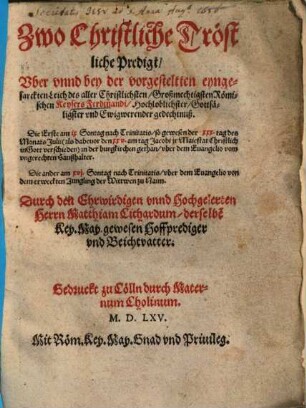 Zwo Christliche Tröst
liche Predigt/
Vber vnnd bey der vorgestelten eynge-
sarckten Leich des aller Christlichsten/ Großmechtigsten Römi-
schen Keysers Ferdinandi/ Hochloblichster/ Gottsä-
ligster vnd Ewigwerender gedechtnuß.
Die Erste am ix Sontag nach Trinitatis/ so gewesen der xxx. tag des
Monats Julij/ als dabevor den xxv. am tag Jacobi jr Maiestat Christlich
in Gott verschieden) in der burgkirchen gethan/ vber dem Euangelio vom
vngerechten Haußhalter.
Die ander am xvj. Sontag nach Trinitatis/ vber dem Euangelio von
dem erweckten Jüngling der Witwen zu Naim.
Durch den Ehrwirdigen vnnd Hochgelerten
Herrn Matthiam Cithardum/ derselbē
Key. May. gewesen Hoffprediger
vnd Beichtvatter.
Gedruckt zu Cölln durch Mater-
num Cholinum.
M. D. LXV.
Mit Röm. Key. May. Gnad vnd Priuileg.